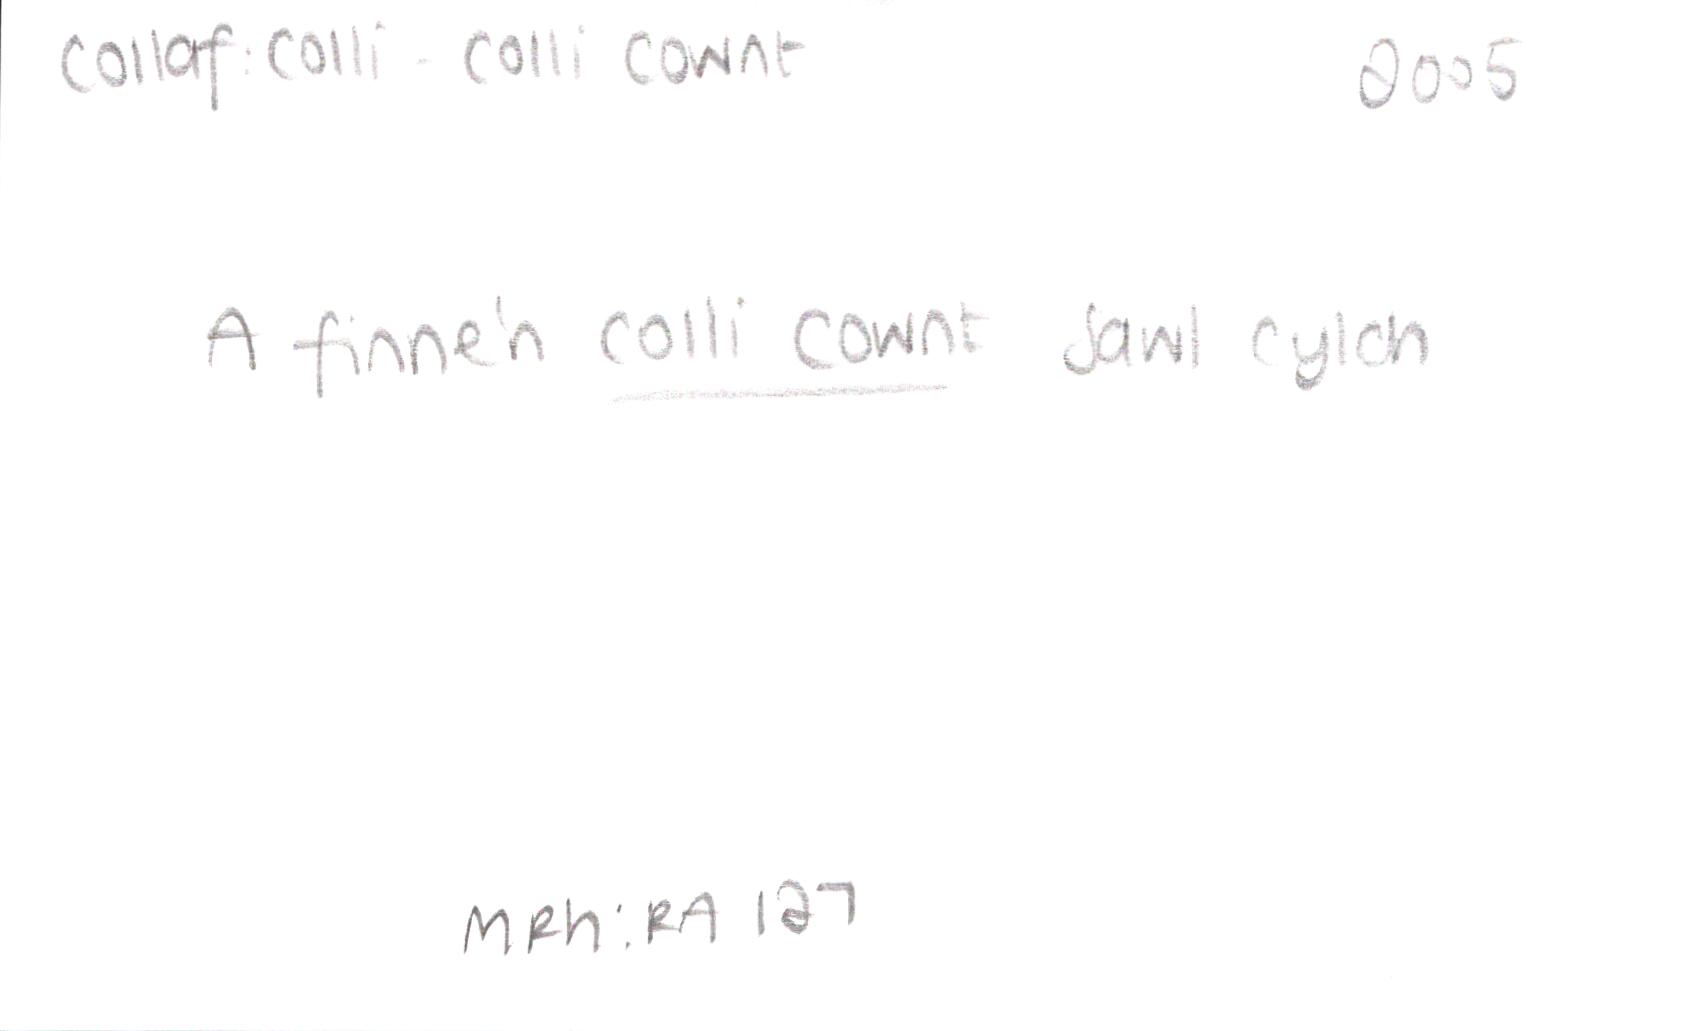 collaf: colli - colli cownt 2005
A finne'n colli cownt sawl cylch
MRh: RA 127